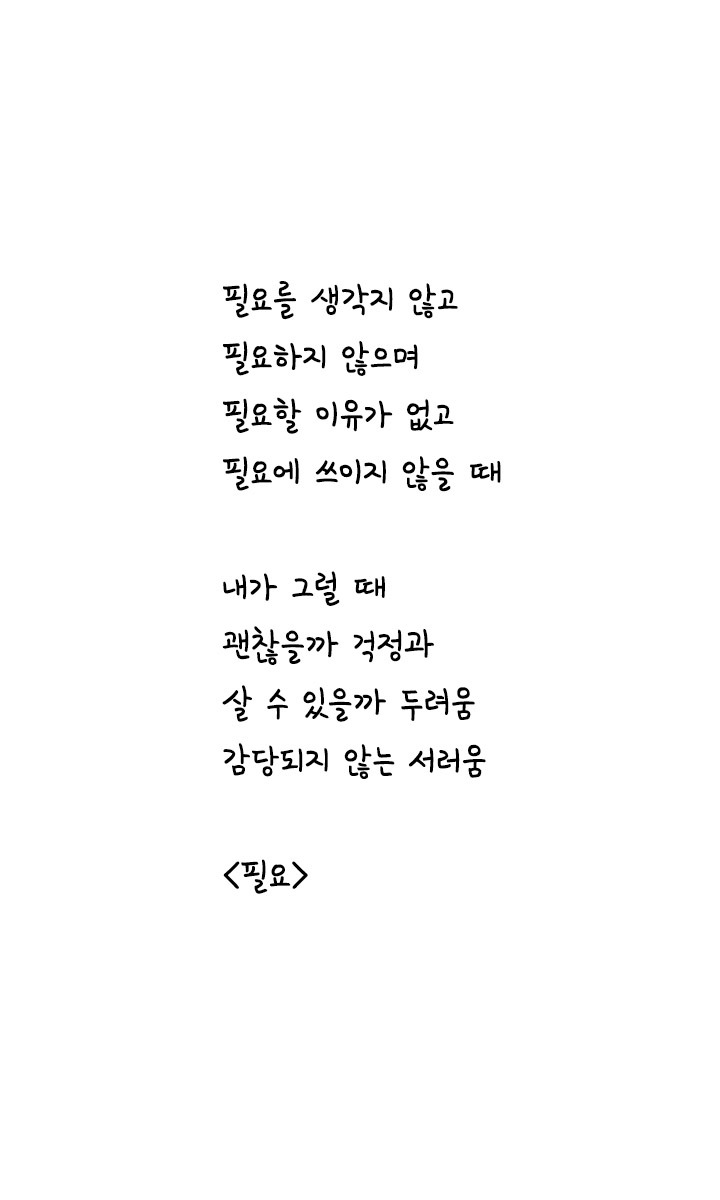 필요를 생각지 않고
필요하지 않으며
필요할 이유가 없고
필요에 쓰이지 않을 때
내가 그럴 때
괜찮을까 걱정과
살 수 있을까 두려움
감당되지 않는 서러움
<필요>